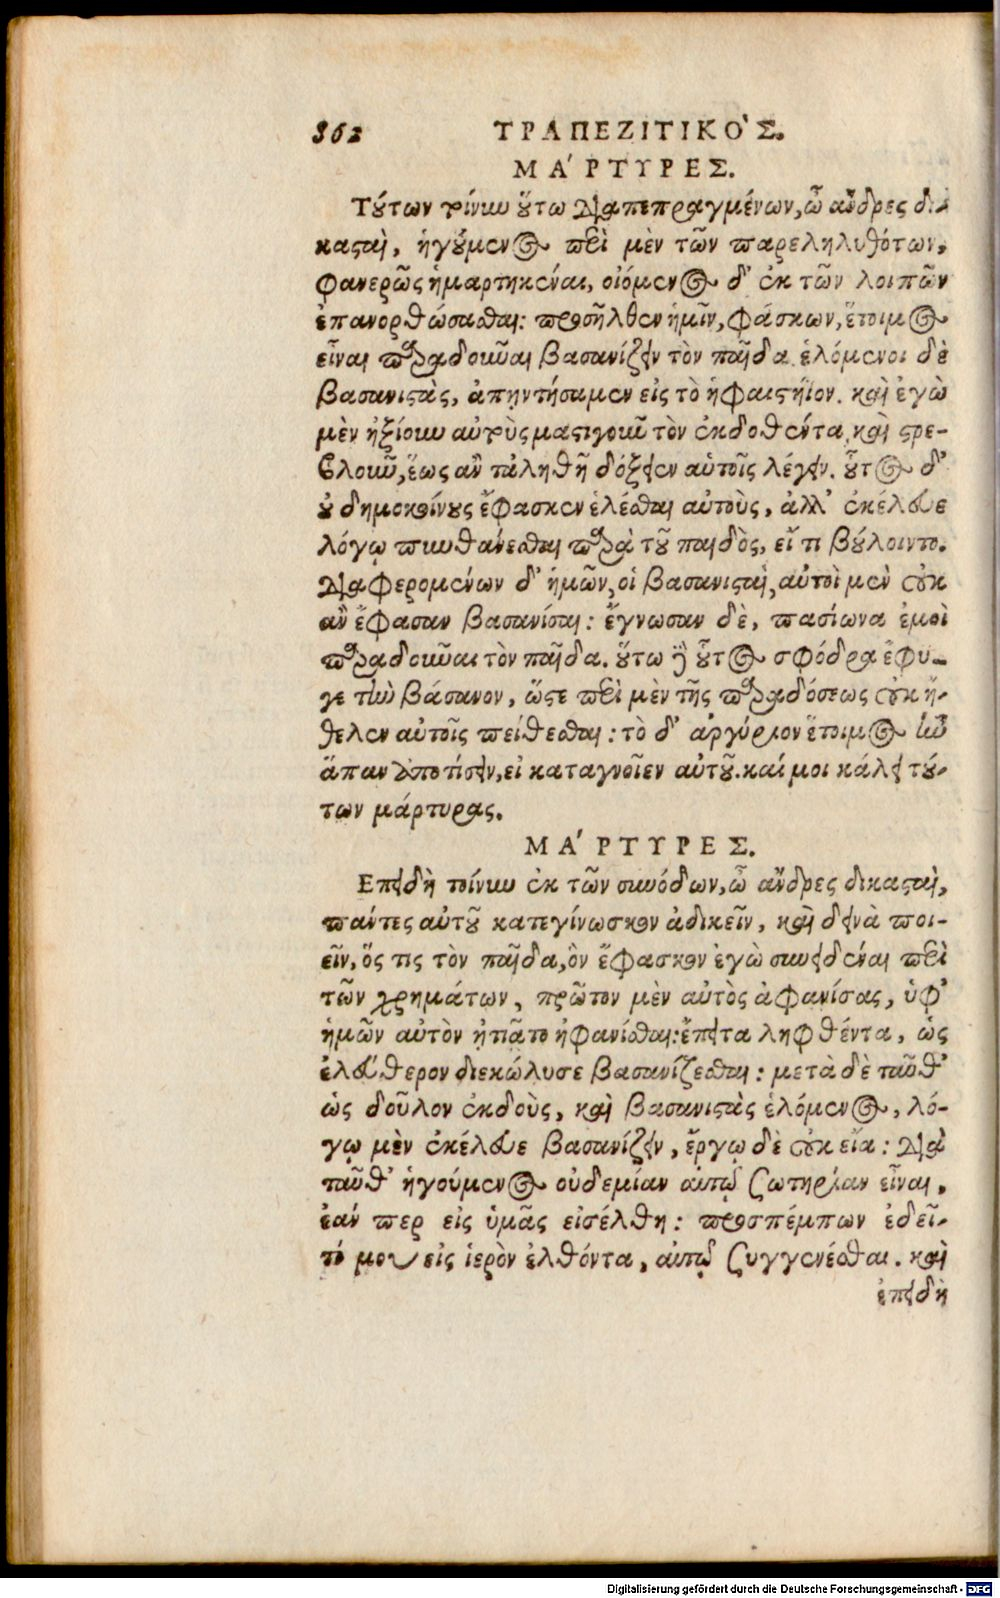 362 ΤΡΑΠΕΖΙΤΙΚΟ'Σ.
ΜΑ'ΡΤΥΡΕΣ.
Τȣ́των τοίνυν ȣ̔́τω διαπεπραγμένων, ὦ ἄνδρες δι-
κασταὶ, ἡγȣ́μενος περὶ μὲν τῶν παρεληλυθότων,
φανερῶς ἡμαρτηκέναι, οἰόμενος δ' ἐκ τῶν λοιπῶν
ἐπανορθώσασθαι: προσῆλθεν ἡμῖν, φάσκων, ἕτοιμος
εἶναι παραδοῦναι βασανίζειν τὸν παῖδα. ἑλόμενοι δὲ
βασανιστὰς, ἀπηντήσαμεν εἰς τὸ ἡφαιστήϊον. καὶ ἐγὼ
μὲν ἠξίουν αὐτοὺς μαστιγοῦν τὸν ἐκδοθέντα, καὶ στρε-
βλοῦν, ἕως ἂν τἀληθῆ δόξειεν αὐτοῖς λέγειν. ȣ̔͂τος δ'
ȣ̓ δημοκοίνȣς ἔφασκεν ἑλέσθαι αὐτοὺς, ἀλλ' ἐκέλευε
λόγῳ πυνθάνεσθαι παρὰ τȣ͂ παιδὸς, εἴ τι βȣ́λοιντο.
διαφερομένων δ' ἡμῶν, οἱ βασανισταὶ, αὐτοὶ μὲν οὐκ
ἂν ἔφασαν βασανίσαι: ἔγνωσαν δὲ, πασίωνα ἐμοὶ
παραδοῦναι τὸν παῖδα. ȣ̔́τω δὲ ȣ̔͂τος σφόδρα ἔφυ-
γε τὴν βάσανον, ὥστε περὶ μὲν τῆς παραδόσεως οὐκ ἤ-
θελεν αὐτοῖς πείθεσθαι: τὸ δ' ἀργύριον ἕτοιμος ἦν
ἅπαν ἀποτίσειν, εἰ καταγνοῖεν αὐτȣ͂. καί μοι κάλει τȣ́-
των μάρτυρας.
ΜΑ'ΡΤΥΡΕΣ.
Επειδὴ τοίνυν ἐκ τῶν συνόδων, ὦ ἄνδρες δικασταὶ,
πάντες αὐτȣ͂ κατεγίνωσκον ἀδικεῖν, καὶ δεινὰ ποι-
εῖν, ὅς τις τὸν παῖδα, ὃν ἔφασκον ἐγὼ συνειδέναι περὶ
τῶν χρημάτων, πρῶτον μὲν αὐτὸς ἀφανίσας, ὑφ'
ἡμῶν αὐτὸν ᾐτιᾶτο ἠφανίσθαι: ἔπειτα ληφθέντα, ὡς
ἐλεύθερον διεκώλυσε βασανίζεσθαι: μετὰ δὲ ταῦθ'
ὡς δοῦλον ἐκδοὺς, καὶ βασανιστὰς ἑλόμενος, λό-
γῳ μὲν ἐκέλευε βασανίζειν, ἔργῳ δὲ οὐκ εἴα: διὰ
ταῦθ' ἡγούμενος οὐδεμίαν αὑτῷ σωτηρίαν εἶναι,
ἐάν περ εἰς ὑμᾶς εἰσέλθη: προσπέμπων ἐδεῖ-
τό μου εἰς ἱερὸν ἐλθόντα, αὑτῷ συγγενέσθαι. καὶ
ἐπειδὴ
Digitalisierung gefördert durch die Deutsche Forschungsgemeinschaft - DFG